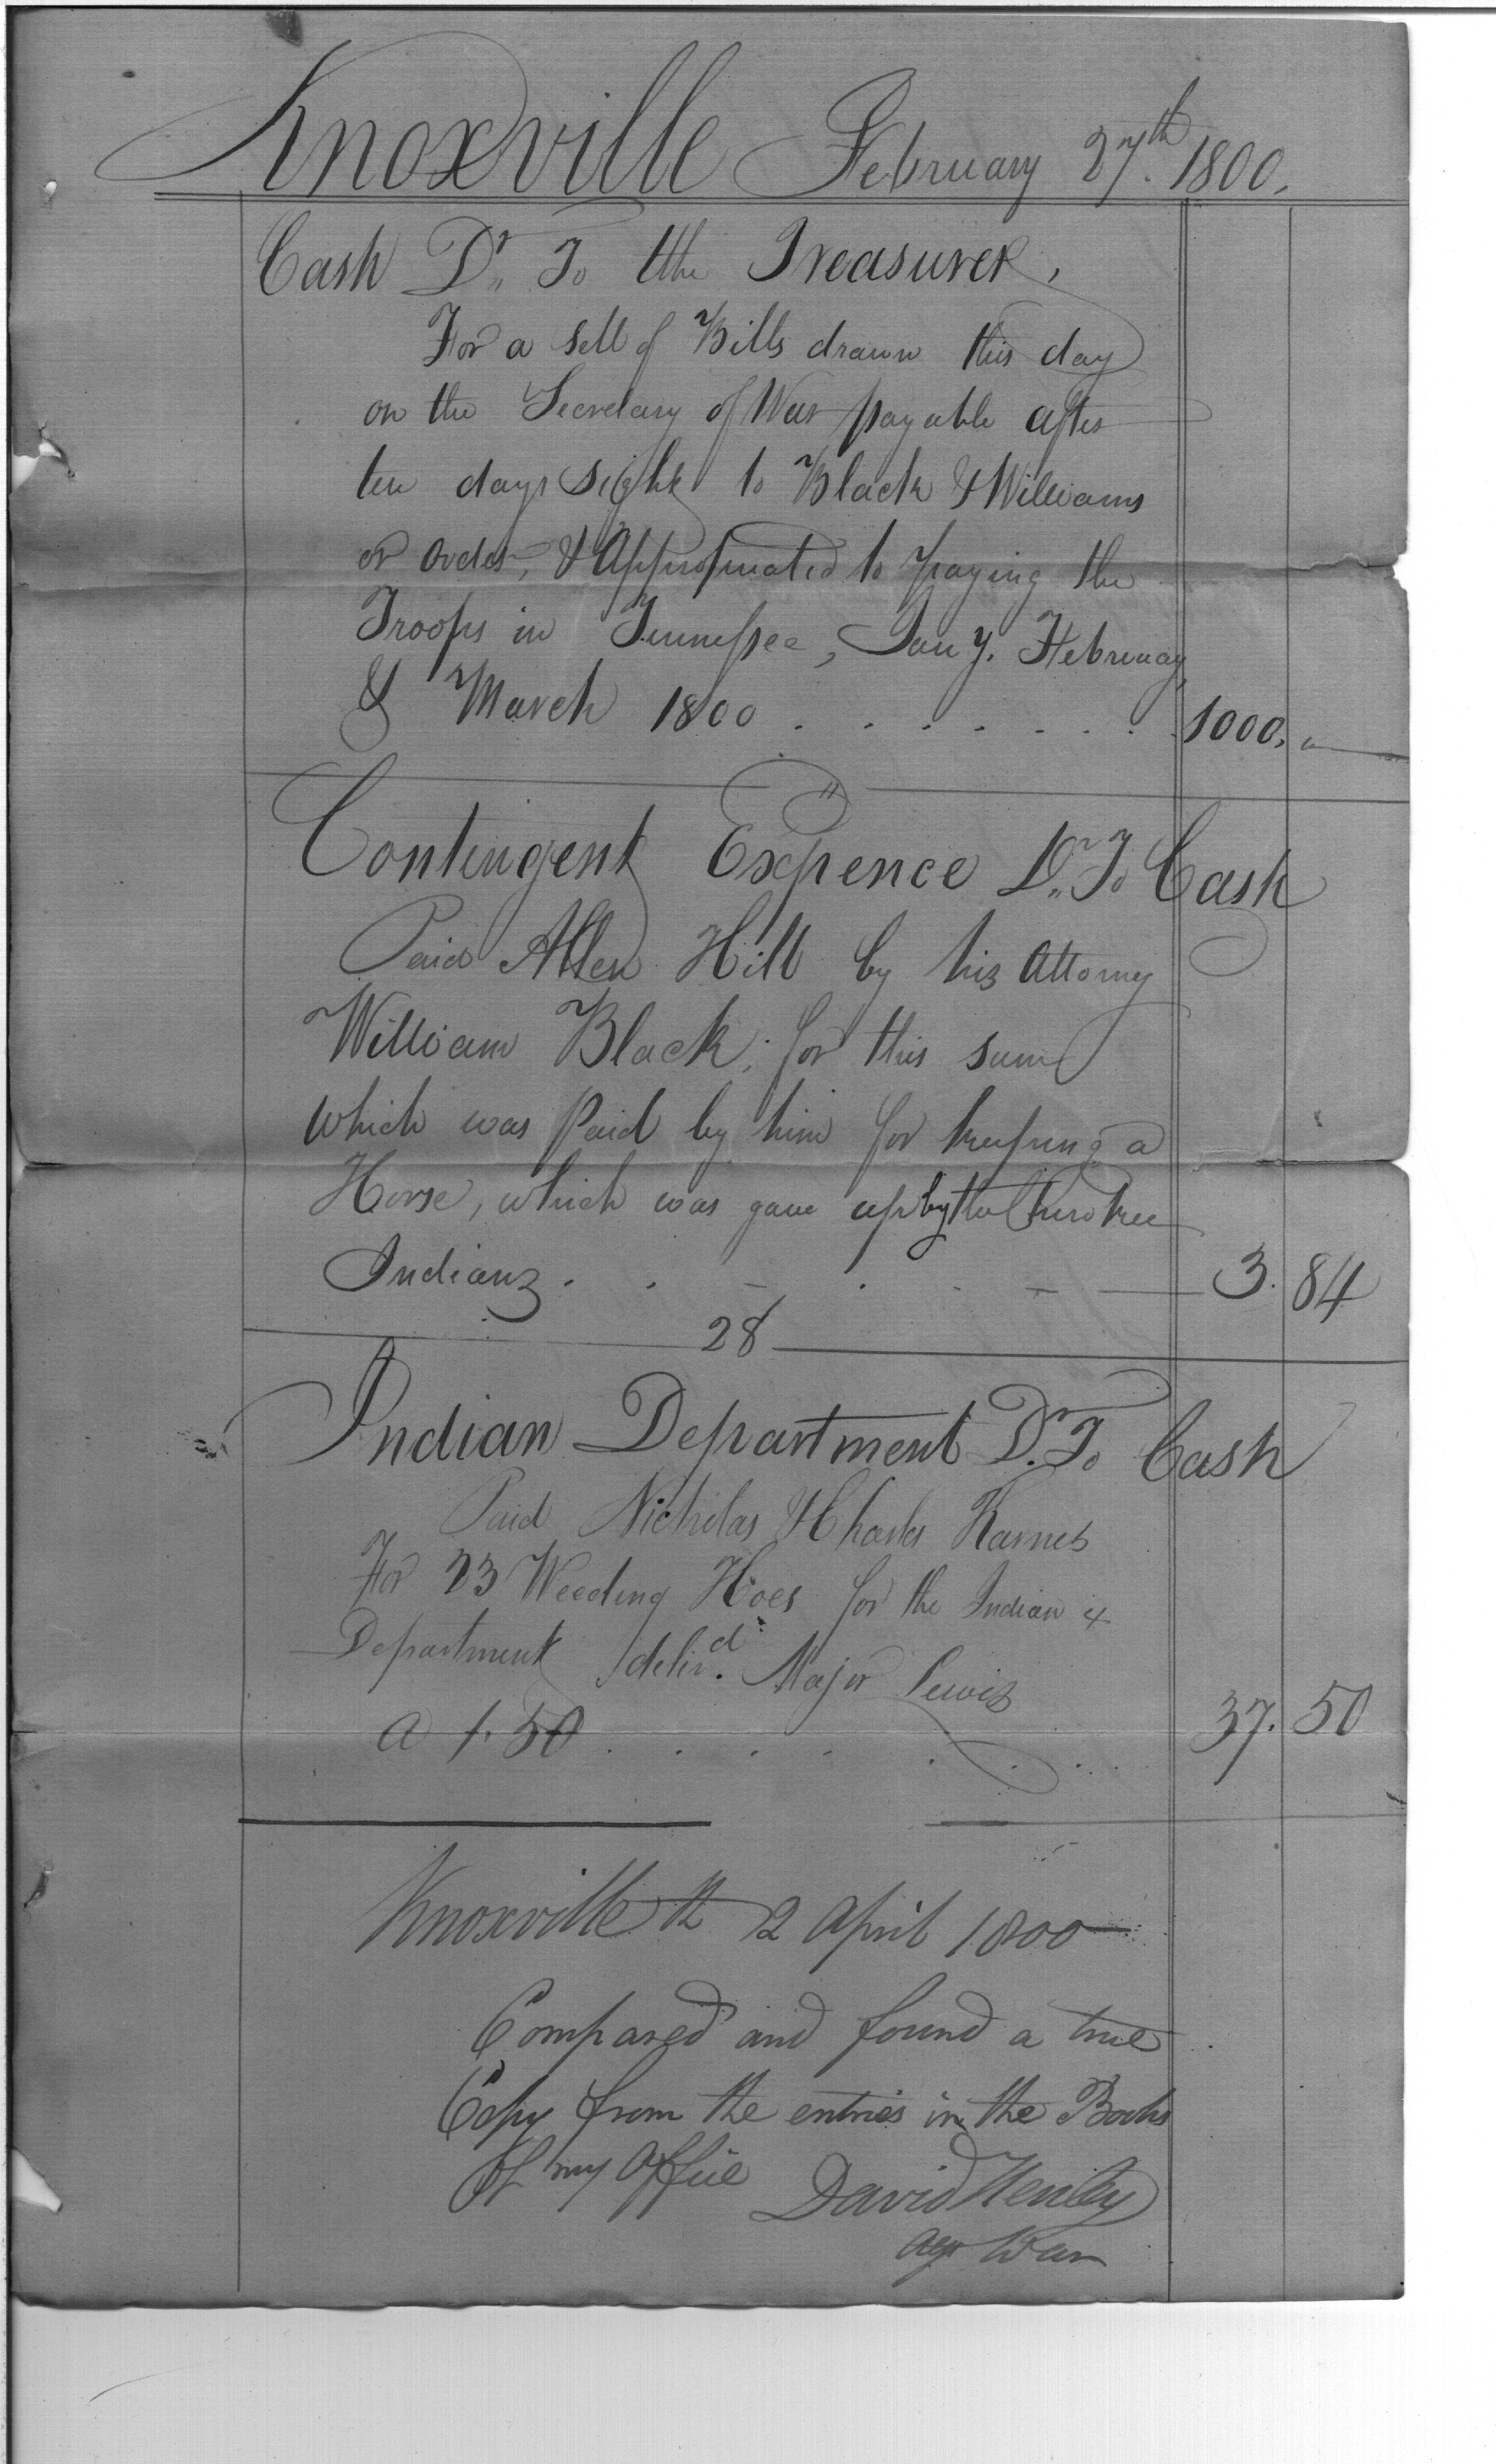 Knoxville February 27th. 1800.
Cash Dr. To the Treasurer,
For a Sett of Bills drawn this day
on the Secretary of War payable after
ten days sight to Black & Williams
or order, & Appropriated to paying the
Troops in Tennessee, Jany. February,
& March 1800 . . . . . . . 1000. "
"
Contingent Expence Dr. To Cash
Paid Allen Hill by his Attorney
William Black, for this sum
which was Paid by him for keeping a
Horse, which was gave up by the Cherokee
Indians . . . . . 3. 84
28
Indian Department Dr. To Cash
Paid Nicholas & Charles Karnes
For 23 Weeding Hoes for the Indian
Department delivd. Major Lewis
a 1.50 . . . . . . . 37. 50
Knoxville 2 April 1800
Compared and found a true
Copy from the entries in the Books
of my Office David Henley
Agt War